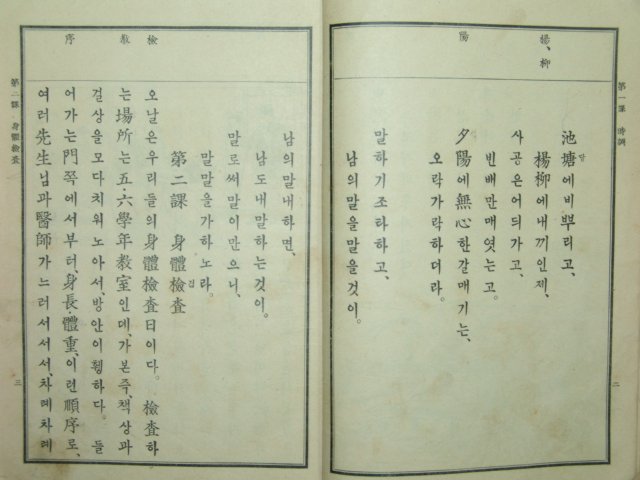 楊、柳
陽
第一課 時調
池塘에비뿌리고、
당
楊柳에내끼인제、
사공은어듸가고、
빈배만매엿는고。
夕陽에無心한갈매기는、
오락가락하더라。
말하기조타하고、
남의말을말을것이。
二
檢
敎
序
남의말내하면、
남도내말하는것이。
말로써말이만으니、
말말을가하노라。
第二課 身體檢査
검
오날은우리들의身體檢査日이다。 檢査하
는場所는五・六學年敎室인데、가본즉、책상과
걸상을모다치워노아서、방안이휑하다。 들
어가는門쪽에서부터、身長、體重、이런順序로、
여러先生님과醫師가느러서서서、차례차례
第二課 身體檢査
三